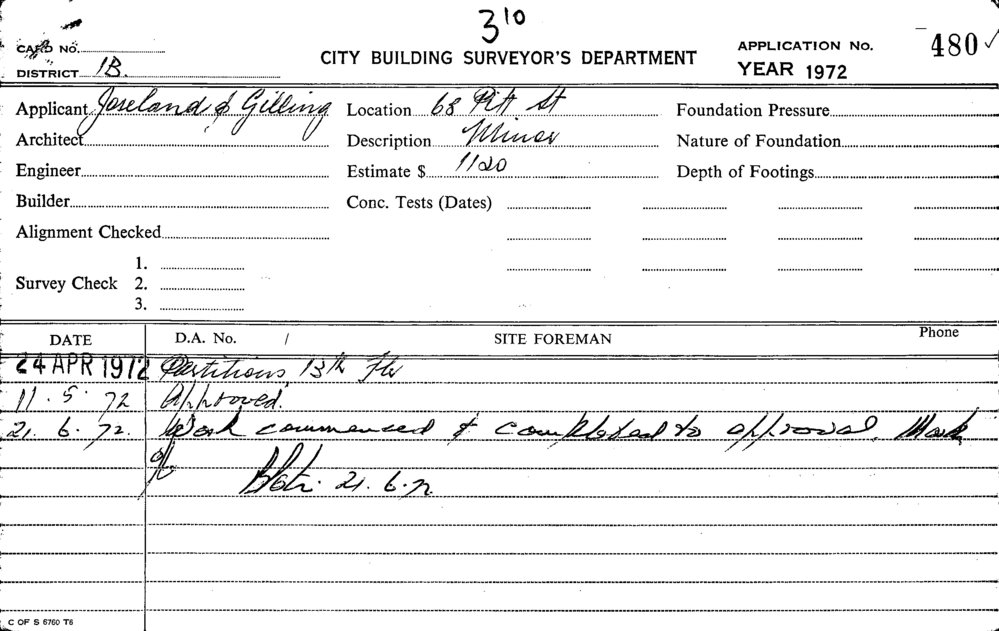 3 10
CARD No.
CITY BUILDING SURVEYOR'S DEPARTMENT
APPLICATION No. 480 ✓
DISTRICT 1B.
YEAR 1972
Applicant Joseland & Gilling
Location 68 Pitt St
Foundation Pressure
Architect
Description Minor
Nature of Foundation
Engineer
Estimate $ 1120
Depth of Footings
Builder
Conc. Tests (Dates)
Alignment Checked
Survey Check
1.
2.
3.
DATE
D.A. No. /
SITE FOREMAN
Phone
24 APR 1972 Partitions 13th Flr
11. 5. 72 Approved.
21. 6. 72. Work commenced & completed to approval. Mark
off
21. 6. 72.
C OF S 6760 T6